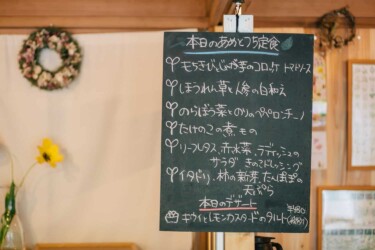 本日のあめつち定食
もちきびとじゃが芋のコロッケ トマトソース
ほうれん草と人参の白和え
のらぼう菜とのりのペペロンチーノ
たけのこの煮もの
リーフレタス、赤水菜、ラディッシュの
サラダ きのこドレッシング
イタドリ、柿の新芽、たんぽぽの
天ぷら
本日のデザート
キウイとレモンカスタードのタルト